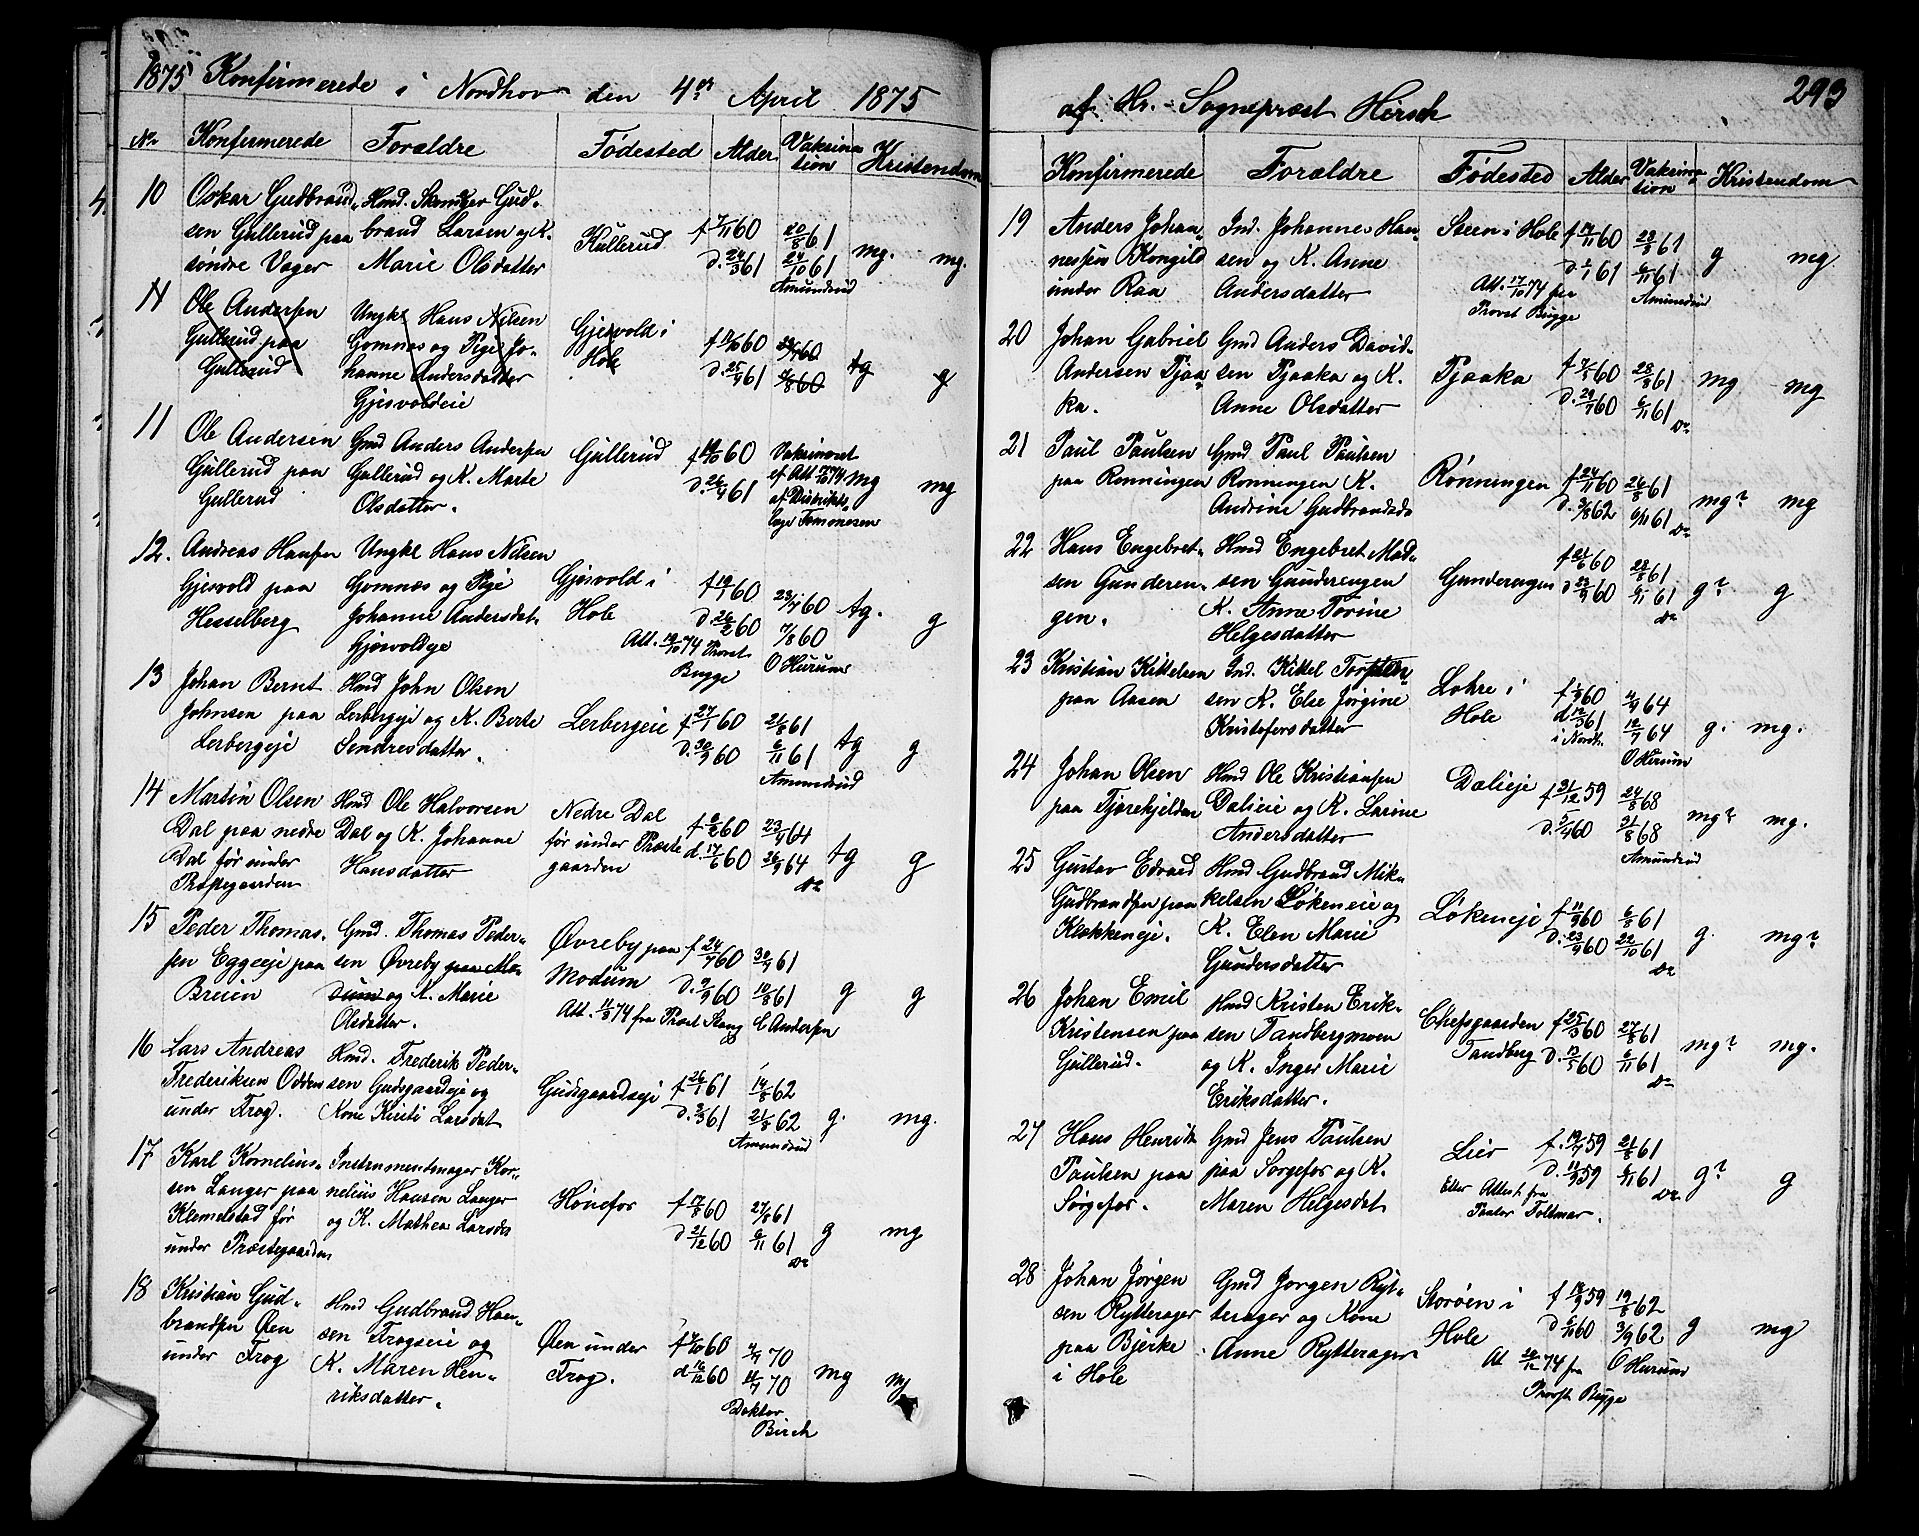 1875 Konfirmerede i Nordhov den 4de April 1875
No Konfermerede Forældre Fødested Alder Vaksina tion Kristendom
10 Oskar Gudbrand-
sen Gullerud paa
søndre Vager
Hmd. Skrædder Gud-
brand Larsen og K.
Marie Olsdatter
Kullerud
f 7/11 60
d. 24/3 61
20/8 61
24/10 61
Amundrud
mg. mg.
11 Ole Andersen
Gullerud paa
Gullerud
Ungkl Hans Nilsen
Gomnæs og Pige Jo-
hanne Andersdatter
Gjesvoldeie
Gjesvold i
Hole
d. 25/4 61
tg g
11 Ole Andersen
Gullerud paa
Gullerud
Gmd Anders Andersen
Gullerud og K. Marte
Olsdatter.
Gullerud
d. 26/4 61
Vaksineret
af Distrikts-
læge Tomonesen
mg mg
12. Andreas Hansen
Gjesvold paa
Hesselberg
Ungkl Hans Nilsen
Gomnæs og Pige
Johanne Andersdat.
Gjesvoldeje
Gjesvold i
Hole
Att. 19/10 74 Provst
Bugge
f 19/1 60
d. 26/2 60
23/7 60
7/8 60
O Hurum
tg. g
13 Johan Bernt
Johnsen paa
Lerbergeje
Hmd John Olsen
Lerbergeje og K. Berte
Sendresdatter.
Lerbergeie
f 27/1 60
d. 30/9 60
21/8 61
6/11 61
Amundrud
tg g
14 Martin Olsen
Dal paa nedre
Dal før under
Præstegaarden
Hmd Ole Halvorsen
Dal og K. Johanne
Hansdatter
Nedre Dal
før under Præste
gaarden
f 6/2 60
d. 17/6 60
23/9 64
26/9 64
Do
tg g
15 Peder Thomas-
sen Eggeeje paa
Breien
Gmd. Thomas Peder-
sen Øvreby paa Mo-
dum og K. Marie
Olsdatter.
Øvreby paa
Modum
Att. 11/3 74 fra Præst Stang
f 24/7 60
d. 9/9 60
30/7 61
10/8 61
C Andersen
g g
16 Lars Andreas
Frederiksen Odden
under Frog.
Hmd. Frederik Peder-
sen Gudsgaardseje og
Kone Kirsti Larsdat
Gudsgaardseje
f 26/1 61
d. 3/3 61
14/8 62
21/8 62
Amundrud
g. mg.
17 Karl Kornelius-
sen Langer paa
Klemetstad før
under Præstegaarden
Instrumentmager Kor-
nelius Hansen Langer
og K. Mathea Larsda
Hønefos
f 17/8 60
d 21/12 60
27/8 61
6/11 61
Do
g mg
18 Kristian Gud-
brandsen Øen
under Frog
Hmd Gudbrand Han-
sen Frogseie og
K. Maren Hen-
riksdatter.
Øen under
Frog.
f 7/10 60
d 16/12 60
4/7 70
11/7 70
Doktor
Birch
mg mg
af Hr. Sognepræst Hirsch 293
Konfirmerede Forældre Fødested Alder Vaksina-tion Kristendom
19 Anders Johan-
nessen Kongild
under Raa
Ind. Johannes Han-
sen og K. Anne
Andersdatter
Steen i Hole
Att. 17/10 74 fra
Provst Bugge
f 14/11 60
d. 1/1 61
28/8 61
6/11 61
Amundrud
g mg.
20 Johan Gabriel
Andersen Tjaa-
ka.
Gmd Anders David-
sen Tjaaka og K.
Anne Olsdatter
Tjaaka
f 7/5 60
d. 29/7 60
28/8 61
6/11 61
Do
mg mg
21 Paul Paulsen
paa Rønningen
Gmd Paul Paulsen
Rønningen K.
Andrine Gudbrandsda
Rønningen
f 24/11 60
d. 3/8 62
26/8 61
6/11 61
Do
mg? mg
22 Hans Engebret-
sen Gunderen-
gen.
Hmd Engebret Mad-
sen Gunderengen
K. Anne Torine
Helgesdatter
Gunderengen
f 21/6 60
d 23/9 60
28/8 61
6/11 61
Do
g? g
23 Kristian Kittelsen
paa Aasen
Ind. Kittel Torsten-
sen K. Else Jørgine
Kristofersdatter
Lohre i
Hole
f 1/9 60
d 12/5 61
i Nordh.
4/7 64
12/7 64
O Hurum
g. mg.
24 Johan Olsen
paa Tjærekjelden
Hmd Ole Kristiansen
Dalieie og K. Lavine
Andersdatter
Dalieje
f 31/12 59
d. 5/4 60
24/8 68
31/8 68
Amundrud
mg? mg.
25 Gustav Edvard
Gudbrandsen paa
Klækkeneje.
Hmd Gudbrand Mik-
kelsen Løkeneie og
K. Elen Marie
Gundersdatter
Løkeneje
f 11/7 60
d. 23/9 60
6/8 61
22/10 61
Do
g. mg?
26 Johan Emil
Kristensen paa
Gullerud.
Hmd Kristen Erik-
sen Tandbergmoen
og K. Inger Marie
Eriksdatter.
Chefsgaarden
Tandberg
f 25/3 60
d. 13/5 60
27/8 61
6/11 61
Do
mg? mg.
27 Hans Henrik
Paulsen paa
Sørgefos.
Gmd Jens Paulsen
paa Sørgefos og K.
Maren Helgesdat
Lier
Efter Attest fra
Pastor Foltmar.
f. 19/7 59
d. 11/9 59
21/8 61
6/11 61
Do
g? g
28 Johan Jørgen
sen Rytterager
paa Bjerke
i Hole
Gmd Jørgen Ryt-
terager og Kone
Anne Rytterager
Storøen i
Hole
At 20/12 74 fra
Provst Bugge
f 18/9 59
d. 6/11 60
19/8 62
3/9 62
O Hurum
g mg